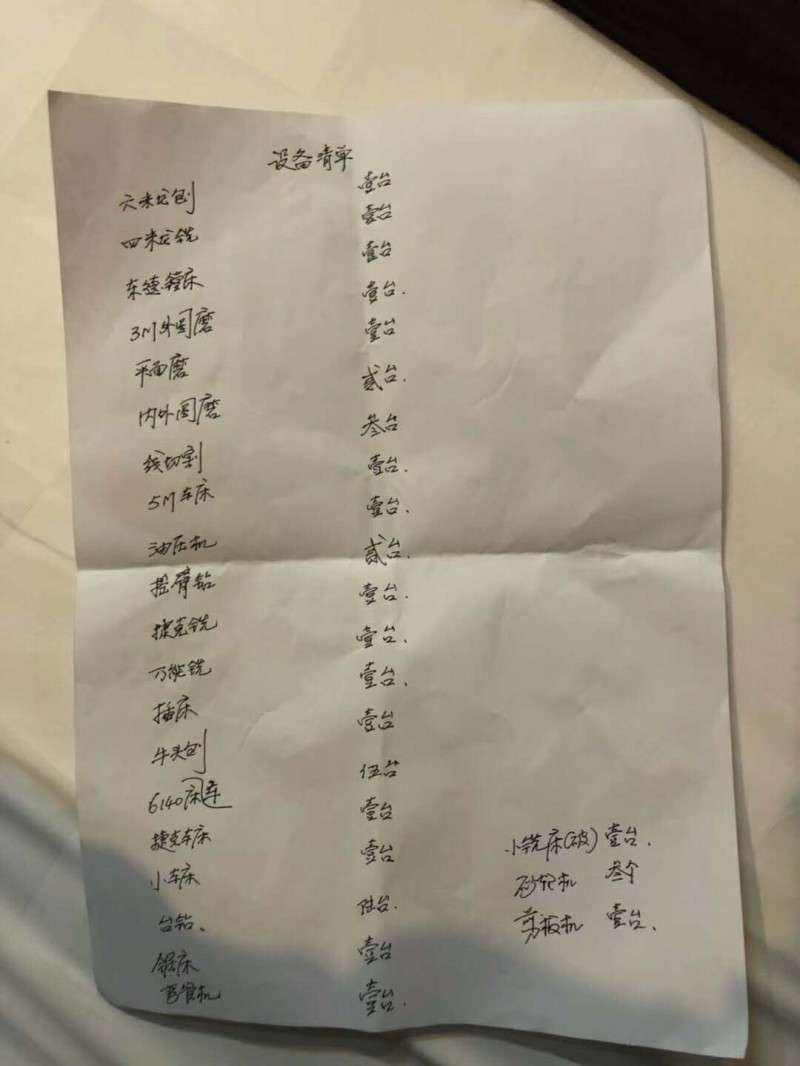 设备清单
六米龙刨 壹台
四米龙铣 壹台
东德镗床 壹台
3M外圆磨 壹台.
平面磨 壹台
内外圆磨 贰台.
线切割 叁台
5M车床 壹台.
油压机 壹台.
摇臂钻 贰台.
捷克铣 壹台.
万能铣 壹台.
插床 壹台.
牛头刨 壹台
6140床车 伍台
捷克车床 壹台
小车床 壹台
台钻、 陆台.
锯床 壹台
管机 壹台.
小铣床(破) 壹台.
砂轮机 叁个
剪板机 壹台.